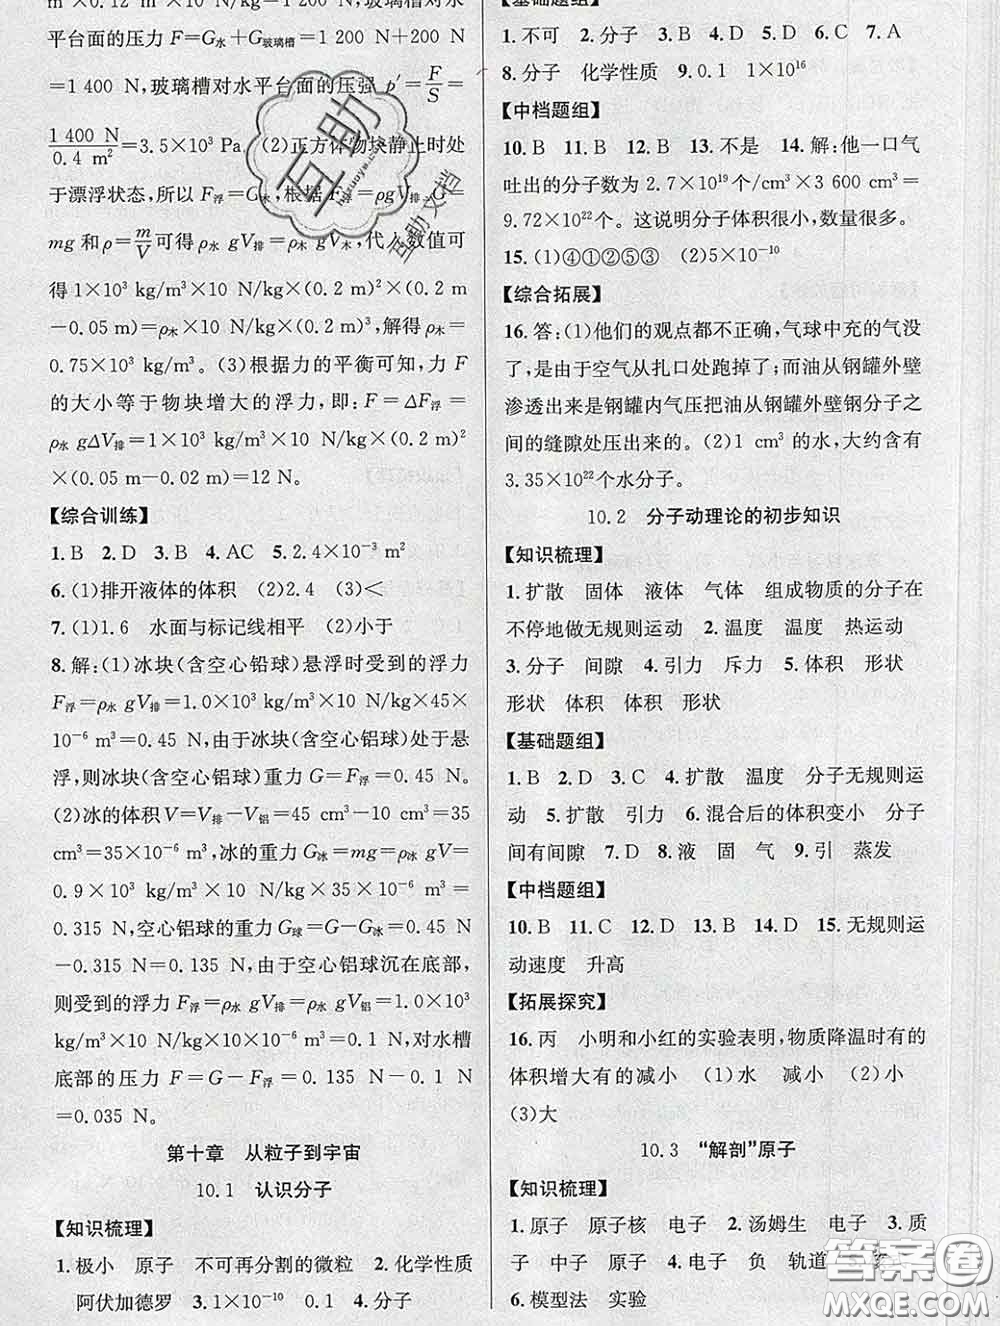 m³×0.12 m³×10 N/kg=1 200 N,玻璃槽对水
平台面的压力 F=G水+G玻璃槽=1 200 N+200 N
=1 400 N,玻璃槽对水平台面的压强 p′=F/S
=1 400 N/0.4 m²=3.5×10³ Pa (2)正方体物块静止时处
于漂浮状态,所以 F浮=G木,根据 F浮=ρgV排、G=
mg 和 ρ=m/V可得 ρ水 gV排=ρ木 gV木,代入数值可
得 1×10³ kg/m³×10 N/kg×(0.2 m)²×(0.2 m
-0.05 m)=ρ木×10 N/kg×(0.2 m)³,解得 ρ木=
0.75×10³ kg/m³。(3)根据力的平衡可知,力 F
的大小等于物块增大的浮力,即:F=ΔF浮=
ρ水 gΔV排=1×10³ kg/m³×10 N/kg×(0.2 m)²
×(0.05 m-0.02 m)=12 N。
【综合训练】
1. B 2. D 3. B 4. AC 5. 2.4×10⁻³ m²
6. (1)排开液体的体积 (2)2.4 (3)<
7. (1)1.6 水面与标记线相平 (2)小于
8. 解:(1)冰块(含空心铅球)悬浮时受到的浮力
F浮=ρ水 gV排=1.0×10³ kg/m³×10 N/kg×45×
10⁻⁶ m³=0.45 N,由于冰块(含空心铝球)处于悬
浮,则冰块(含空心铝球)重力 G=F浮=0.45 N。
(2)冰的体积 V=V排-V铝=45 cm³-10 cm³=35
cm³=35×10⁻⁶ m³,冰的重力 G冰=mg=ρ冰 gV=
0.9×10³ kg/m³×10 N/kg×35×10⁻⁶ m³=
0.315 N,空心铝球的重力 G球=G-G冰=0.45 N
-0.315 N=0.135 N,由于空心铝球沉在底部,
则受到的浮力 F浮=ρ水 gV排=ρ水 gV铝=1.0×10³
kg/m³×10 N/kg×10×10⁻⁶ m³=0.1 N,对水槽
底部的压力 F=G-F浮=0.135 N-0.1 N
=0.035 N。
第十章 从粒子到宇宙
10.1 认识分子
【知识梳理】
1. 极小 原子 不可再分割的微粒 2. 化学性质
阿伏加德罗 3. 1×10⁻¹⁰ 0.1 4. 分子
【基础题组】
1. 不可 2. 分子 3. B 4. D 5. D 6. C 7. A
8. 分子 化学性质 9. 0.1 1×10¹⁶
【中档题组】
10. B 11. B 12. B 13. 不是 14. 解:他一口气
吐出的分子数为 2.7×10¹⁹个/cm³×3 600 cm³=
9.72×10²²个。这说明分子体积很小,数量很多。
15. (1)④①②⑤③ (2)5×10⁻¹⁰
【综合拓展】
16. 答:(1)他们的观点都不正确,气球中充的气没
了,是由于空气从扎口处跑掉了;而油从钢罐外壁
渗透出来是钢罐内气压把油从钢罐外壁钢分子之
间的缝隙处压出来的。(2)1 cm³ 的水,大约含有
3.35×10²²个水分子。
10.2 分子动理论的初步知识
【知识梳理】
1. 扩散 固体 液体 气体 组成物质的分子在
不停地做无规则运动 2. 温度 温度 热运动
3. 分子 间隙 4. 引力 斥力 5. 体积 形状
形状 体积 体积 形状
【基础题组】
1. B 2. D 3. C 4. 扩散 温度 分子无规则运
动 5. 扩散 引力 6. 混合后的体积变小 分子
间有间隙 7. D 8. 液 固 气 9. 引 蒸发
【中档题组】
10. B 11. C 12. D 13. B 14. D 15. 无规则运
动速度 升高
【拓展探究】
16. 丙 小明和小红的实验表明,物质降温时有的
体积增大有的减小 (1)水 减小 (2)小
(3)大
10.3 “解剖”原子
【知识梳理】
1. 原子 原子核 电子 2. 汤姆生 电子 3. 质
子 中子 原子 4. 电子 负 轨道
6. 模型法 实验
互助
互助文档
答案圈
MXQE.COM